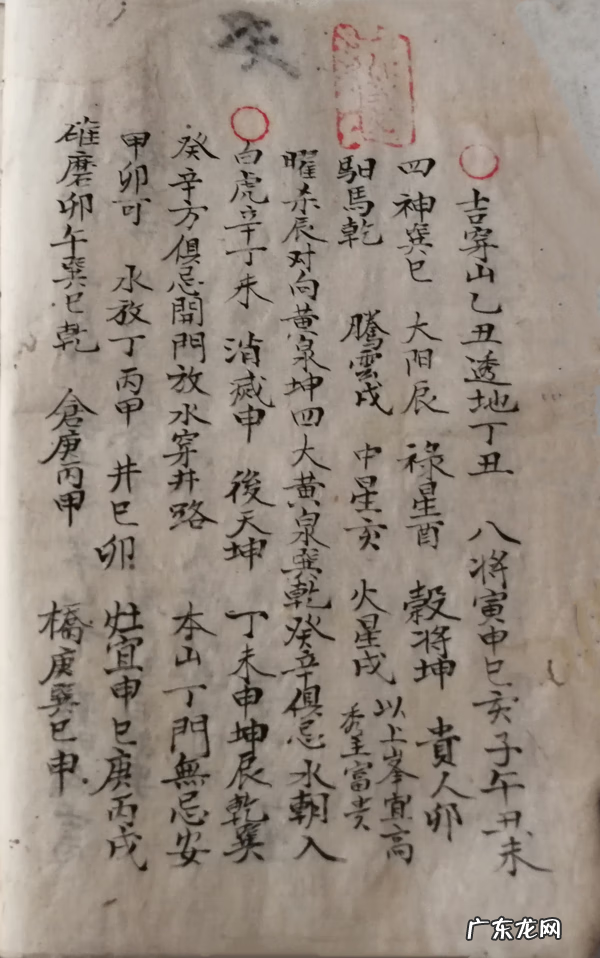 癸
吉穿山乙丑透地丁丑 八將寅申巳亥子午丑未
四神巽巳 大阳辰 祿星酉 穀將坤 貴人卯
馹馬乾 騰雲戌 中星亥 火星戌 以上峯宜高
秀主富贵
曜杀辰对向黄泉坤四大黄泉巽乾癸辛俱忌水朝入
白虎辛丁未 消滅申 後天坤 丁未申坤辰乾巽
癸辛方俱忌開門放水穿井路 本山丁門無忌安
甲卯可 水放丁丙甲 井巳卯 灶宜申巳庚丙戌
碓磨卯午巽巳乾 倉庚丙甲 橋庚巽巳申
广东龙网